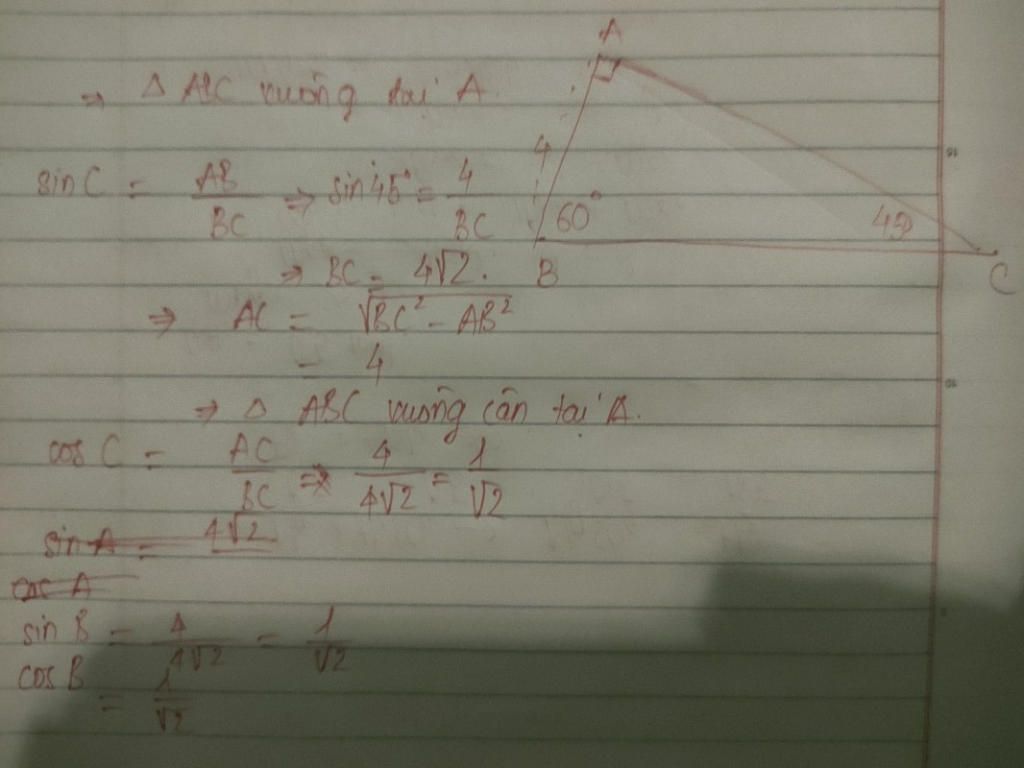 A
⇒ Δ ABC vuông tại A
4
sin C = AB/BC ⇒ sin 45° = 4/BC
60°
45°
⇒ BC = 4√2.
B
C
⇒ AC = √(BC² - AB²)
= 4
⇒ Δ ABC vuông cân tại A.
cos C = AC/BC ⇒ 4/4√2 = 1/√2
sin A = 4√2
cos A
sin B = 4/4√2 = 1/√2
cos B = 1/√2